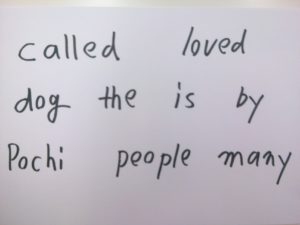 called loved
dog the is by
Pochi people many